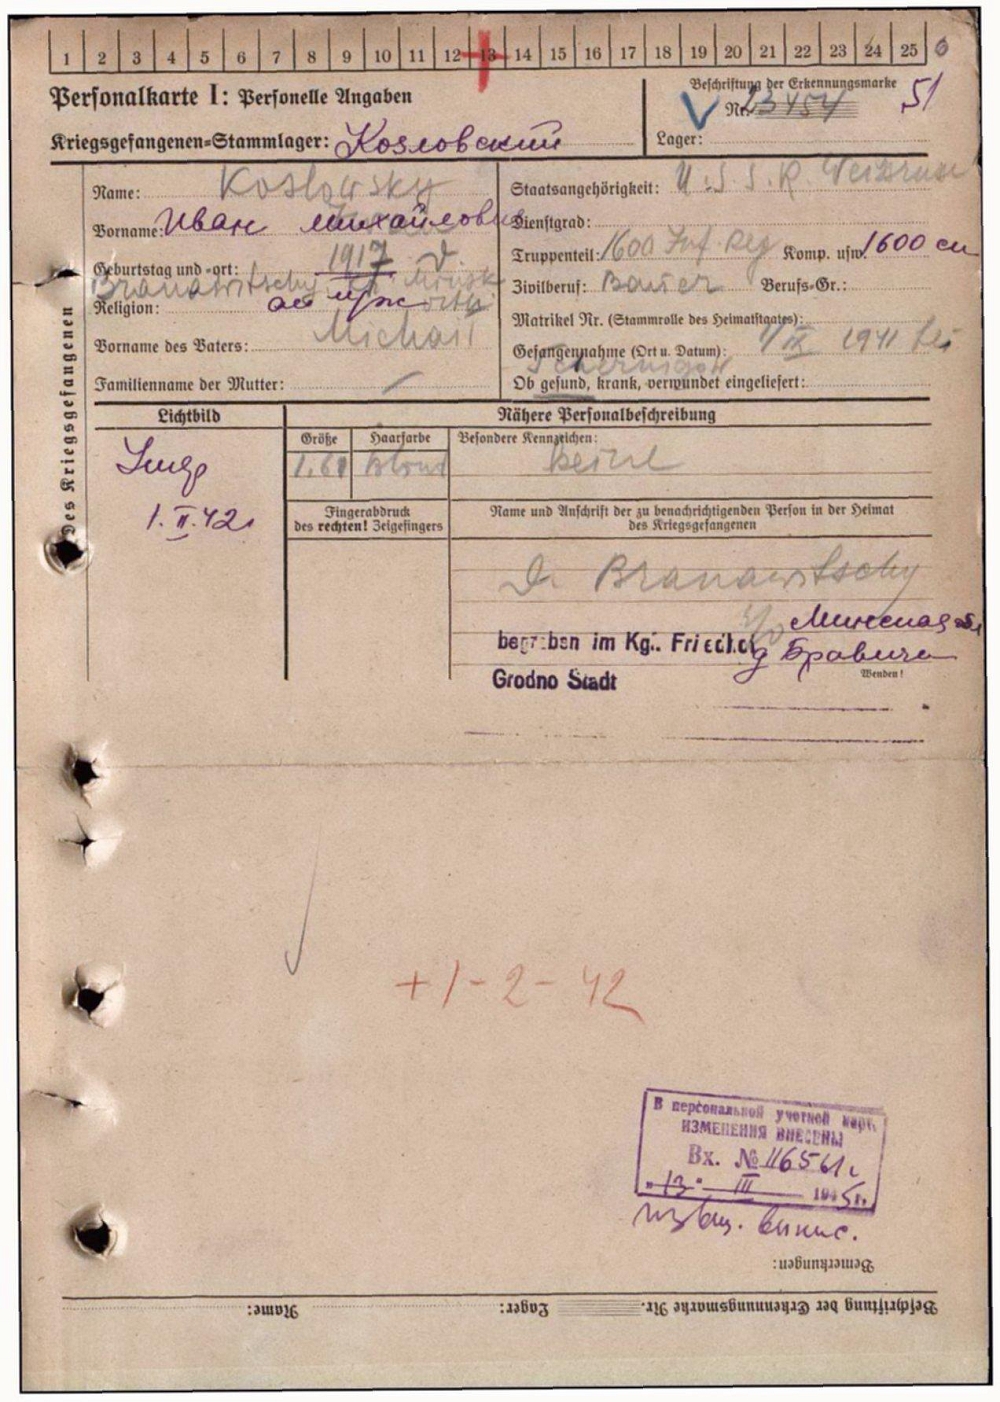 1 2 3 4 5 6 7 8 9 10 11 12 13 14 15 16 17 18 19 20 21 22 23 24 25
Personalkarte I: Personelle Angaben
Beschriftung der Erkennungsmarke
Nr. 23454
51
Kriegsgefangenen-Stammlager: Козловский
Lager:
Des Kriegsgefangenen
Name: Koslowsky
Vorname: Иван Михайлович
Geburtstag und -ort: 1917
Branawitschy Minsk
Religion: orth
Vorname des Vaters: Michail
Familienname der Mutter: —
Staatsangehörigkeit: U.S.S.R.
Dienstgrad:
Truppenteil: 1600 Inf. Reg Komp. usw. 1600 сп
Zivilberuf: Bauer Berufs-Gr.:
Matrikel Nr. (Stammrolle des Heimatstaates):
Gefangennahme (Ort u. Datum): 1/IX 1941 bei
Tschernigow
Ob gesund, krank, verwundet eingeliefert:
Lichtbild
Nähere Personalbeschreibung
Größe
Haarfarbe
Besondere Kennzeichen:
Blond
1. II. 42
Fingerabdruck
des rechten! Zeigefingers
Name und Anschrift der zu benachrichtigenden Person in der Heimat
des Kriegsgefangenen
D. Branawitschy
Минская
begraben im Kgf. Friedhof
Grodno Stadt
Wenden!
+ 1 - 2 - 42
В персональной учетной карт.
ИЗМЕНЕНИЯ ВНЕСЕНЫ
Вх. №
"13" III 1945 г.
Bemerkungen:
Beschriftung der Erkennungsmarke Nr. Lager: Name: